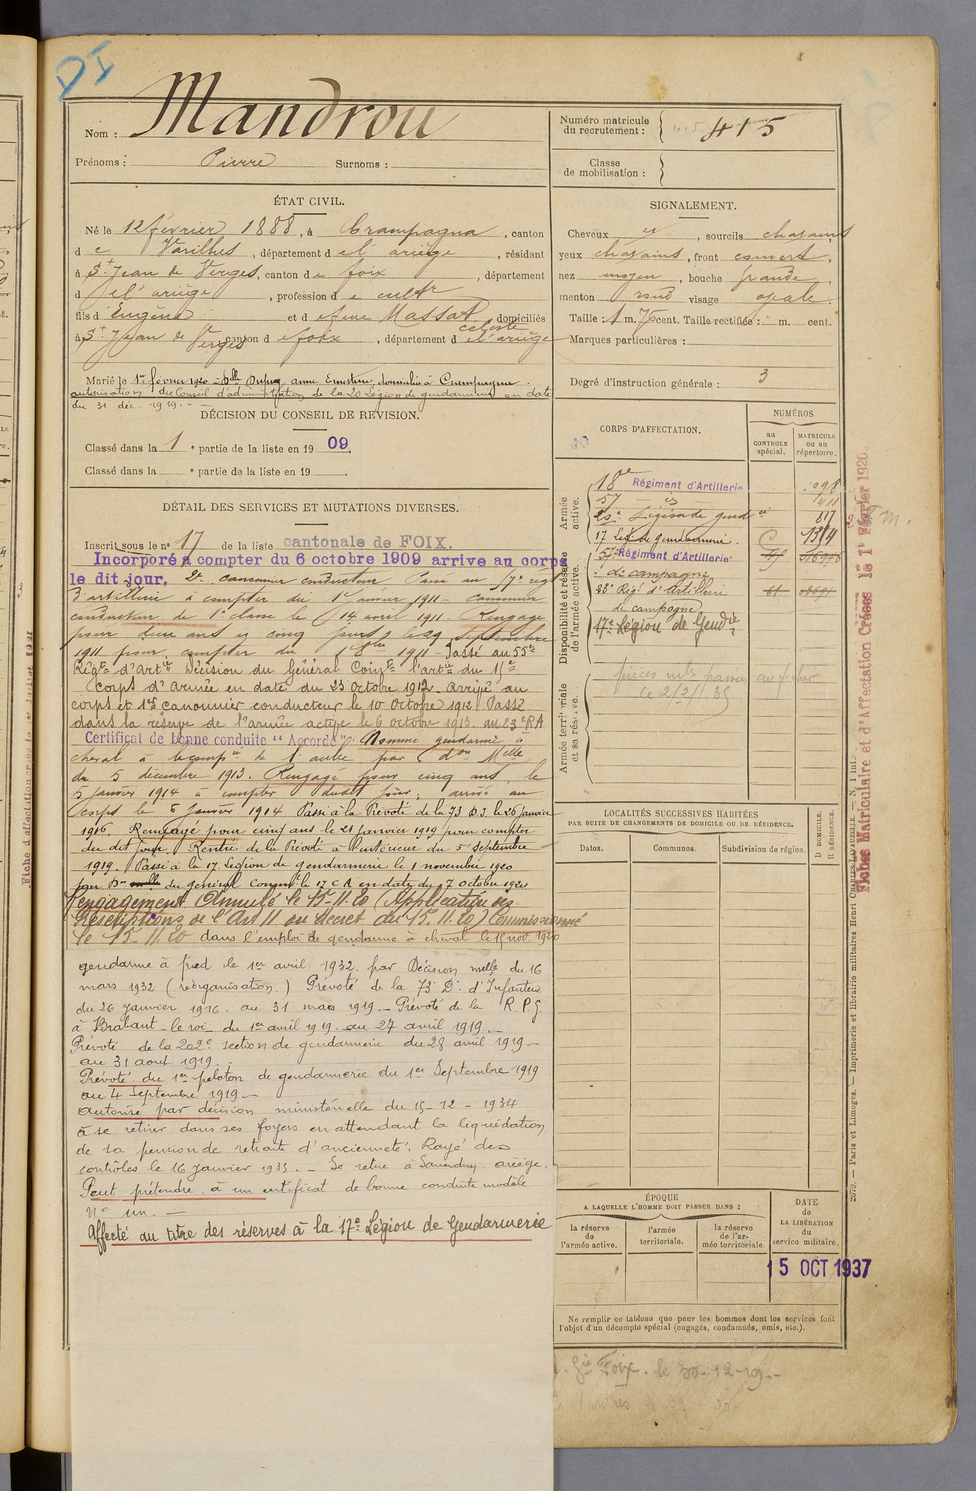 DI
Nom : Mandrou
Prénoms : Pierre Surnoms :
Numéro matricule
du recrutement : 415
Classe
de mobilisation :
ÉTAT CIVIL.
Né le 12 février 1888, à Crampagna, canton
de Varilhes, département de l'ariège, résidant
à St Jean de Verges, canton de foix, département
de l'ariège, profession de cultr
fils d'Eugène et de feue Massat céleste, domiciliés
à St Jean de Verges canton de foix, département de l'ariège
Marié le 1er février 1920 à Dlle Dupuy anne Ernestine, domiciliée à Crampagna.
autorisation du Conseil d'administration de la 20 Légion de gendarmerie en date
du 31 déc. 1919. -
SIGNALEMENT.
Cheveux et, sourcils chatains
yeux chatains, front couvert,
nez moyen, bouche grande,
menton rond visage ovale.
Taille : 1 m. 76 cent. Taille rectifiée : m. cent.
Marques particulières :
Degré d'instruction générale : 3
DÉCISION DU CONSEIL DE REVISION.
Classé dans la 1e partie de la liste en 1909.
Classé dans la e partie de la liste en 19
DÉTAIL DES SERVICES ET MUTATIONS DIVERSES.
Inscrit sous le no 17 de la liste cantonale de FOIX.
Incorporé à compter du 6 octobre 1909 arrive au corps
le dit jour. 2e canonnier conducteur Passé au 57e régt
d'artillerie à compter du 1er janvier 1911 - canonnier
conducteur de 1e classe le 14 avril 1911. Rengagé
pour deux ans et cinq jours le 29 Septembre
1911 pour compter du 1er 8bre 1911 - Passé au 55e
Régt d'Artie Décision du Général Comt l'artie du 15e
Corps d'Armée en date du 23 Octobre 1912. Arrivé au
corps et 1er canonnier conducteur le 10 Octobre 1912 Passé
dans la réserve de l'armée active le 6 octobre 1913. au 23e RA
Certificat de bonne conduite "Accordé". Nommé gendarme à
cheval à la compie de l'aude par don Melle
du 5 décembre 1913. Rengagé pour cinq ans, le
5 janvier 1914 à compter dudit jour, arrivé au
corps le 5 janvier 1914 Passé à la Prévoté de la 73 D.I. le 26 janvier
1916. Rengagé pour cinq ans le 21 janvier 1919 pour compter
du dit jour. Rentré de la Prévoté à l'intérieur du 5 septembre
1919. Passé à la 17. Légion de gendarmerie le 1 novembre 1920
par Don du général Commt le 17 CA en date du 7 octobre 1920
Rengagement Annulé le 15-11.20 (Application des
Prescriptions de l'Art 11 du décret du 15.11.20) Commissionné
le 15-11.20 dans l'emploi de gendarme à cheval le 15 nov. 1920
gendarme à pied le 1er avril 1932. par Décision melle du 16
mars 1932 (réorganisation.) Prévoté de la 73e Dn d'Infanterie
du 26 Janvier 1916. au 31 mars 1919. - Prévoté de la R.P.G.
à Brabant-le-roi du 1er avril 1919. au 27 avril 1919 -
Prévoté de la 202e section de gendarmerie du 28 avril 1919 -
au 31 août 1919. -
Prévoté du 1er peloton de gendarmerie du 1er Septembre 1919
au 4 septembre 1919 -
autorisé par décision ministérielle du 15-12-1934
à se retirer dans ses foyers en attendant la liquidation
de sa pension de retraite d'ancienneté. Rayé des
contrôles le 16 Janvier 1935. - Se retire à Saverdun ariège.
Peut prétendre à un certificat de bonne conduite modèle
No un. -
Affecté au titre des réserves à la 17e Légion de Gendarmerie
CORPS D'AFFECTATION.
NUMÉROS
au
CONTROLE
spécial.
MATRICULE
ou au
répertoire.
Armée
active.
18e Régiment d'Artillerie
57 - id -
20e Légion de gendie 817
17 Légion de gendarmerie. C 1314
Disponibilité et réserve
de l'armée active.
57e Régiment d'Artillerie
de campagne
23e Régt d'Artillerie
de campagne
17e Légion de Gendie
Armée territoriale
et sa réserve.
pièces mts passées au fichier
le 2/2/35
LOCALITÉS SUCCESSIVES HABITÉES
PAR SUITE DE CHANGEMENTS DE DOMICILE OU DE RÉSIDENCE.
Dates. Communes. Subdivision de région. D DOMICILE. R RÉSIDENCE.
ÉPOQUE
A LAQUELLE L'HOMME DOIT PASSER DANS :
la réserve
de
l'armée active.
l'armée
territoriale.
la réserve
de l'ar-
mée territoriale.
DATE
de
LA LIBÉRATION
du
service militaire.
15 OCT 1937
Ne remplir ce tableau que pour les hommes dont les services font
l'objet d'un décompte spécial (engagés, condamnés, omis, etc.).
Foix. le 30-12-19. -
Fiches Matriculaire et d'Affectation Créées le 1er Février 1920
2679. — Paris et Limoges. — Imprimerie et librairie militaires Henri CHARLES-LAVAUZELLE. — N. 1 int.